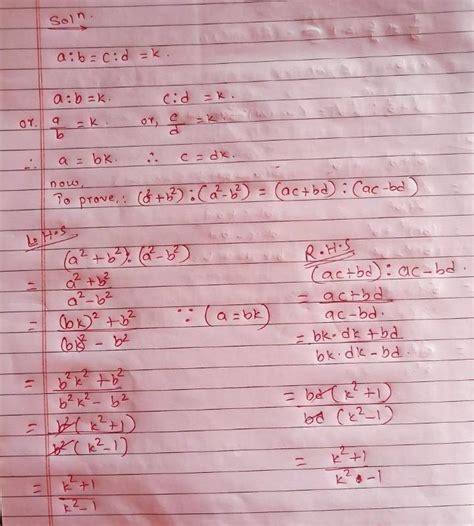 Solⁿ
a:b = c:d = k.
a:b = k. c:d = k.
or a/b = k. or, c/d = k
∴ a = bk. ∴ c = dk.
now,
To prove,: (a²+b²):(a²-b²) = (ac+bd):(ac-bd)
L.H.S
(a²+b²):(a²-b²)
= a²+b² / a²-b²
= (bk)²+b² / (bk)²-b² ∵ (a=bk)
= b²k²+b² / b²k²-b²
= b²(k²+1) / b²(k²-1)
= k²+1 / k²-1
R.H.S
(ac+bd):ac-bd.
= ac+bd / ac-bd.
= bk.dk+bd / bk.dk-bd.
= bd(k²+1) / bd(k²-1)
= k²+1 / k²-1